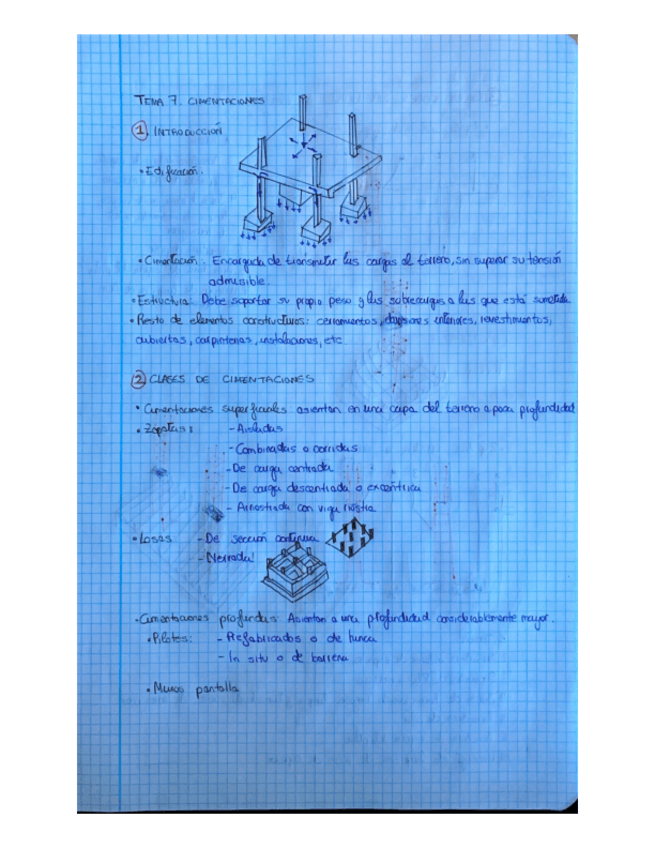 TEMA 7. CIMENTACIONES
1 INTRODUCCIÓN
• Edificación.
• Cimentación. Encargada de transmitir las cargas al terreno, sin superar su tensión
admisible.
• Estructura: Debe soportar su propio peso y las sobrecargas a las que está sometida.
• Resto de elementos constructivos: cerramientos, divisiones interiores, revestimientos,
cubiertas, carpinterias, instalaciones, etc
2 CLASES DE CIMENTACIONES
• Cimentaciones superficiales asientan en una capa del terreno a poca profundidad
• Zapatas: - Aisladas
- Combinadas o corridas
- De carga centrada
- De carga descentrada o excéntrica
- Arriostrada con viga riostra
• Losas - De sección continua
- Nervada
• Cimentaciones profundas: Asientan a una profundidad considerablemente mayor.
• Pilotes: - Prefabricados o de hinca
- In situ o de barrena
• Muros pantalla